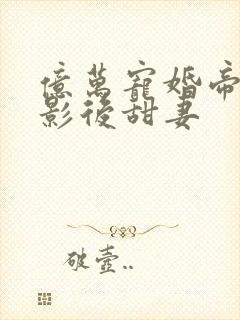 億萬寵婚帝
影後甜妻
破壺..